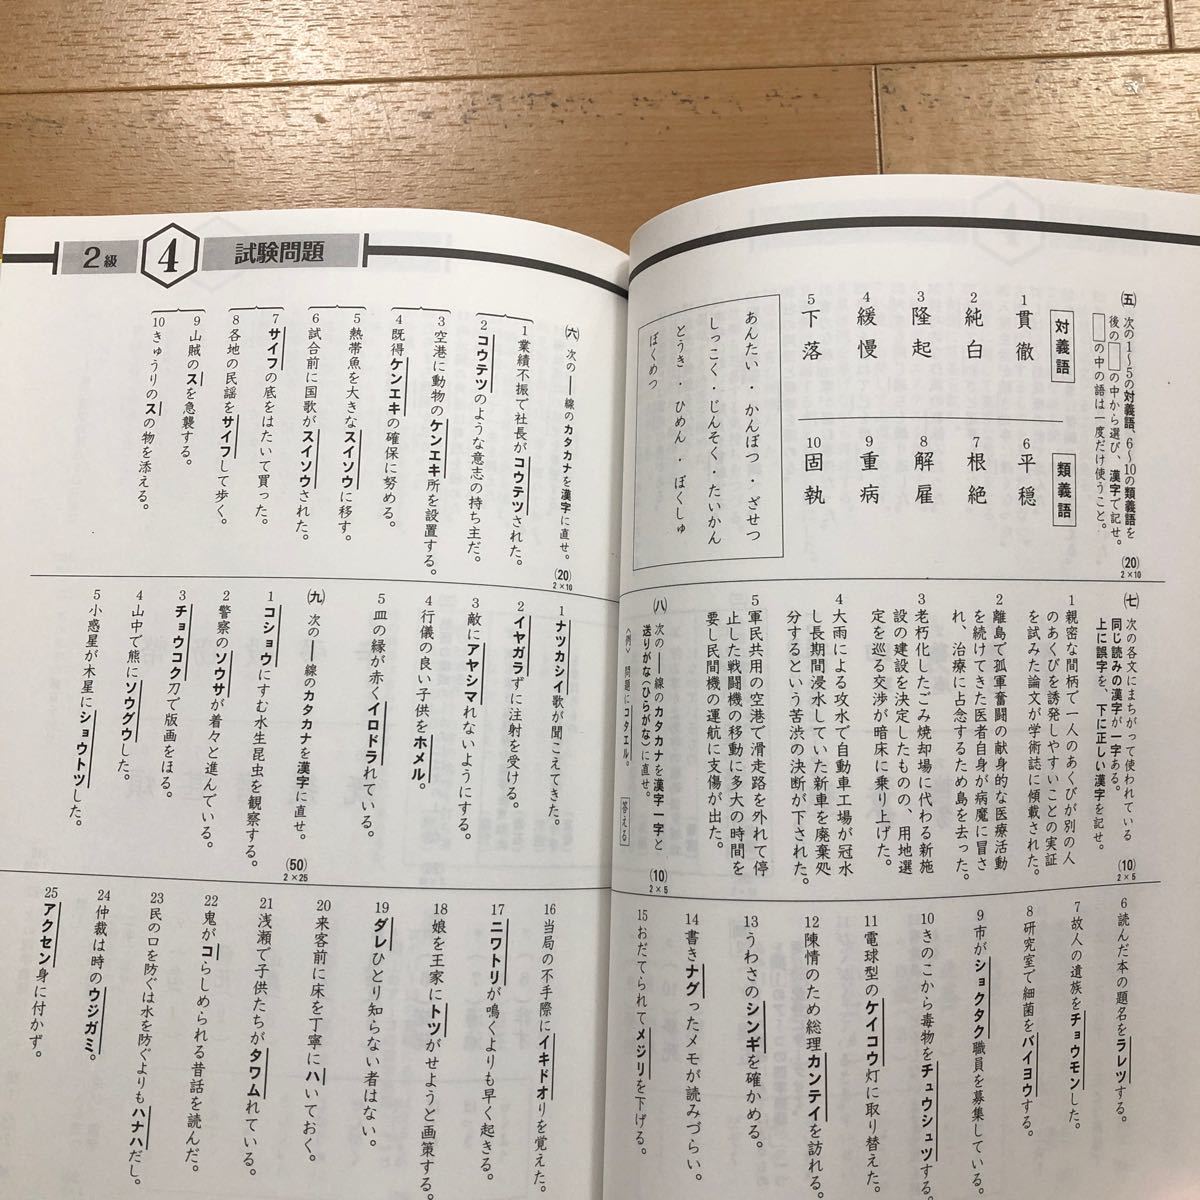 ㈤ 次の1～5の対義語、6～10の類義語を
後の□の中から選び、漢字で記せ。
□の中の語は一度だけ使うこと。
(20)
2×10
対義語
1 貫徹
2 純白
3 隆起
4 緩慢
5 下落
類義語
6 平穏
7 根絶
8 解雇
9 重病
10 固執
あんたい・かんぼつ・ざせつ
しっこく・じんそく・たいかん
とうき・ひめん・ぼくしゅ
ぼくめつ
㈦ 次の各文にまちがって使われている
同じ読みの漢字が一字ある。
上に誤字を、下に正しい漢字を記せ。
(10)
2×5
1 親密な間柄で一人のあくびが別の人
のあくびを誘発しやすいことの実証
を試みた論文が学術誌に傾載された。
2 離島で孤軍奮闘の献身的な医療活動
を続けてきた医者自身が病魔に冒さ
れ、治療に占念するため島を去った。
3 老朽化したごみ焼却場に代わる新施
設の建設を決定したものの、用地選
定を巡る交渉が暗床に乗り上げた。
4 大雨による攻水で自動車工場が冠水
し長期間浸水していた新車を廃棄処
分するという苦渋の決断が下された。
5 軍民共用の空港で滑走路を外れて停
止した戦闘機の移動に多大の時間を
要し民間機の運航に支傷が出た。
㈧ 次の――線のカタカナを漢字一字と
送りがな(ひらがな)に直せ。
(10)
2×5
〈例〉問題にコタエル。 答える
6 読んだ本の題名をラレツする。
7 故人の遺族をチョウモンした。
8 研究室で細菌をバイヨウする。
9 市がショクタク職員を募集している。
10 きのこから毒物をチュウシュツする。
11 電球型のケイコウ灯に取り替えた。
12 陳情のため総理カンテイを訪れる。
13 うわさのシンギを確かめる。
14 書きナグったメモが読みづらい。
15 おだてられてメジリを下げる。
2級
4
試験問題
㈥ 次の――線のカタカナを漢字に直せ。
(20)
2×10
1 業績不振で社長がコウテツされた。
2 コウテツのような意志の持ち主だ。
3 空港に動物のケンエキ所を設置する。
4 既得ケンエキの確保に努める。
5 熱帯魚を大きなスイソウに移す。
6 試合前に国歌がスイソウされた。
7 サイフの底をはたいて買った。
8 各地の民謡をサイフして歩く。
9 山賊のスを急襲する。
10 きゅうりのスの物を添える。
1 ナツカシイ歌が聞こえてきた。
2 イヤガラずに注射を受ける。
3 敵にアヤシマれないようにする。
4 行儀の良い子供をホメル。
5 皿の縁が赤くイロドラれている。
㈨ 次の――線のカタカナを漢字に直せ。
(50)
2×25
1 コショウにすむ水生昆虫を観察する。
2 警察のソウサが着々と進んでいる。
3 チョウコク刀で版画をほる。
4 山中で熊にソウグウした。
5 小惑星が木星にショウトツした。
16 当局の不手際にイキドオりを覚えた。
17 ニワトリが鳴くよりも早く起きる。
18 娘を王家にトツがせようと画策する。
19 ダレひとり知らない者はない。
20 来客前に床を丁寧にハいておく。
21 浅瀬で子供たちがタワムれている。
22 鬼がコらしめられる昔話を読んだ。
23 民の口を防ぐは水を防ぐよりもハナハだし。
24 仲裁は時のウジガミ。
25 アクセン身に付かず。